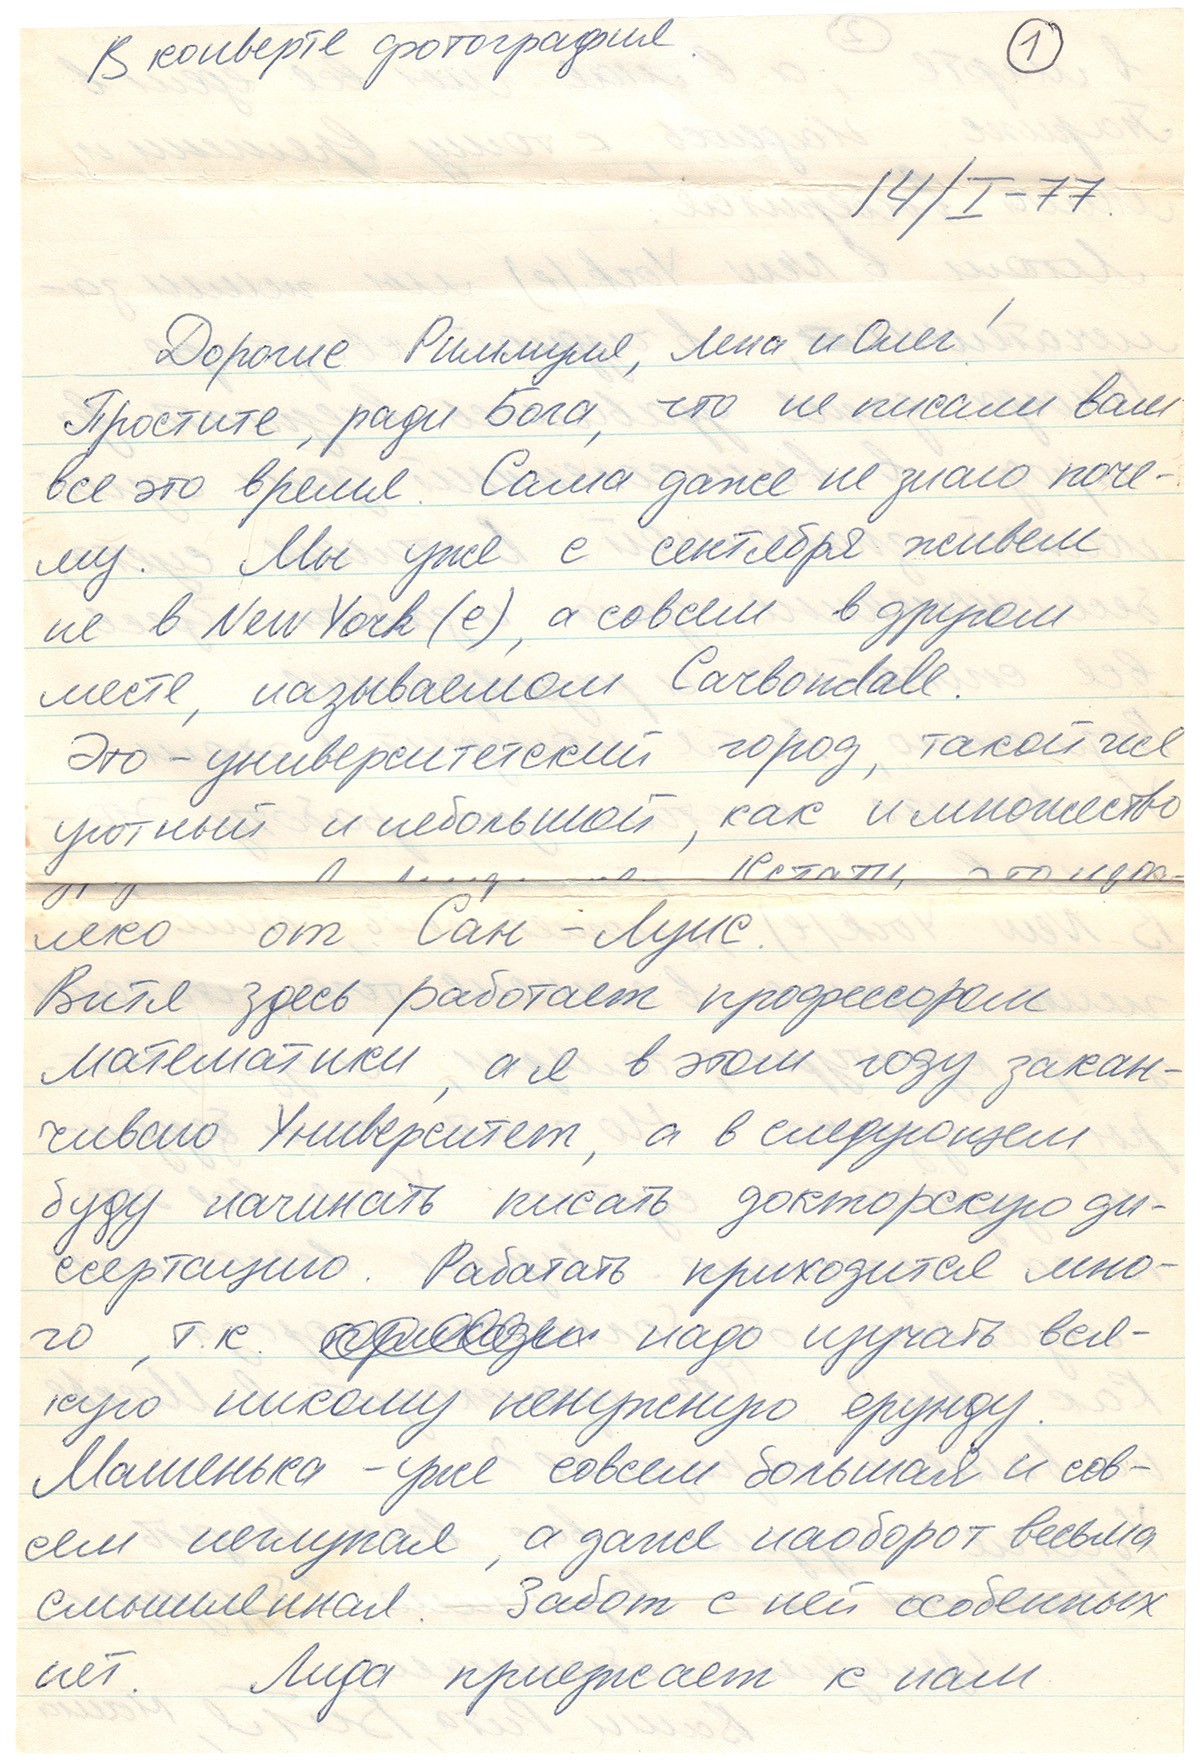 В конверте фотография.
1
14/I-77.
Дорогие Риммуля, Лена и Олег!
Простите, ради Бога, что не писали вам
все это время. Сама даже не знаю поче-
му. Мы уже с сентября живем
не в New York(е), а совсем в другом
месте, называемом Carbondale.
Это - университетский город, такой же
уютный и небольшой, как и множество
Кстати, это
леко от Сан-Луис.
Витя здесь работает профессором
математики, а я в этом году закан-
чиваю Университет, а в следующем
буду начинать писать докторскую ди-
ссертацию. Работать приходится мно-
го, т.к. надо изучать вся-
кую никому ненужную ерунду.
Машенька - уже совсем большая и сов-
сем неглупая, а даже наоборот весьма
смышленная. Забот с ней особенных
нет. Лида приезжает к нам